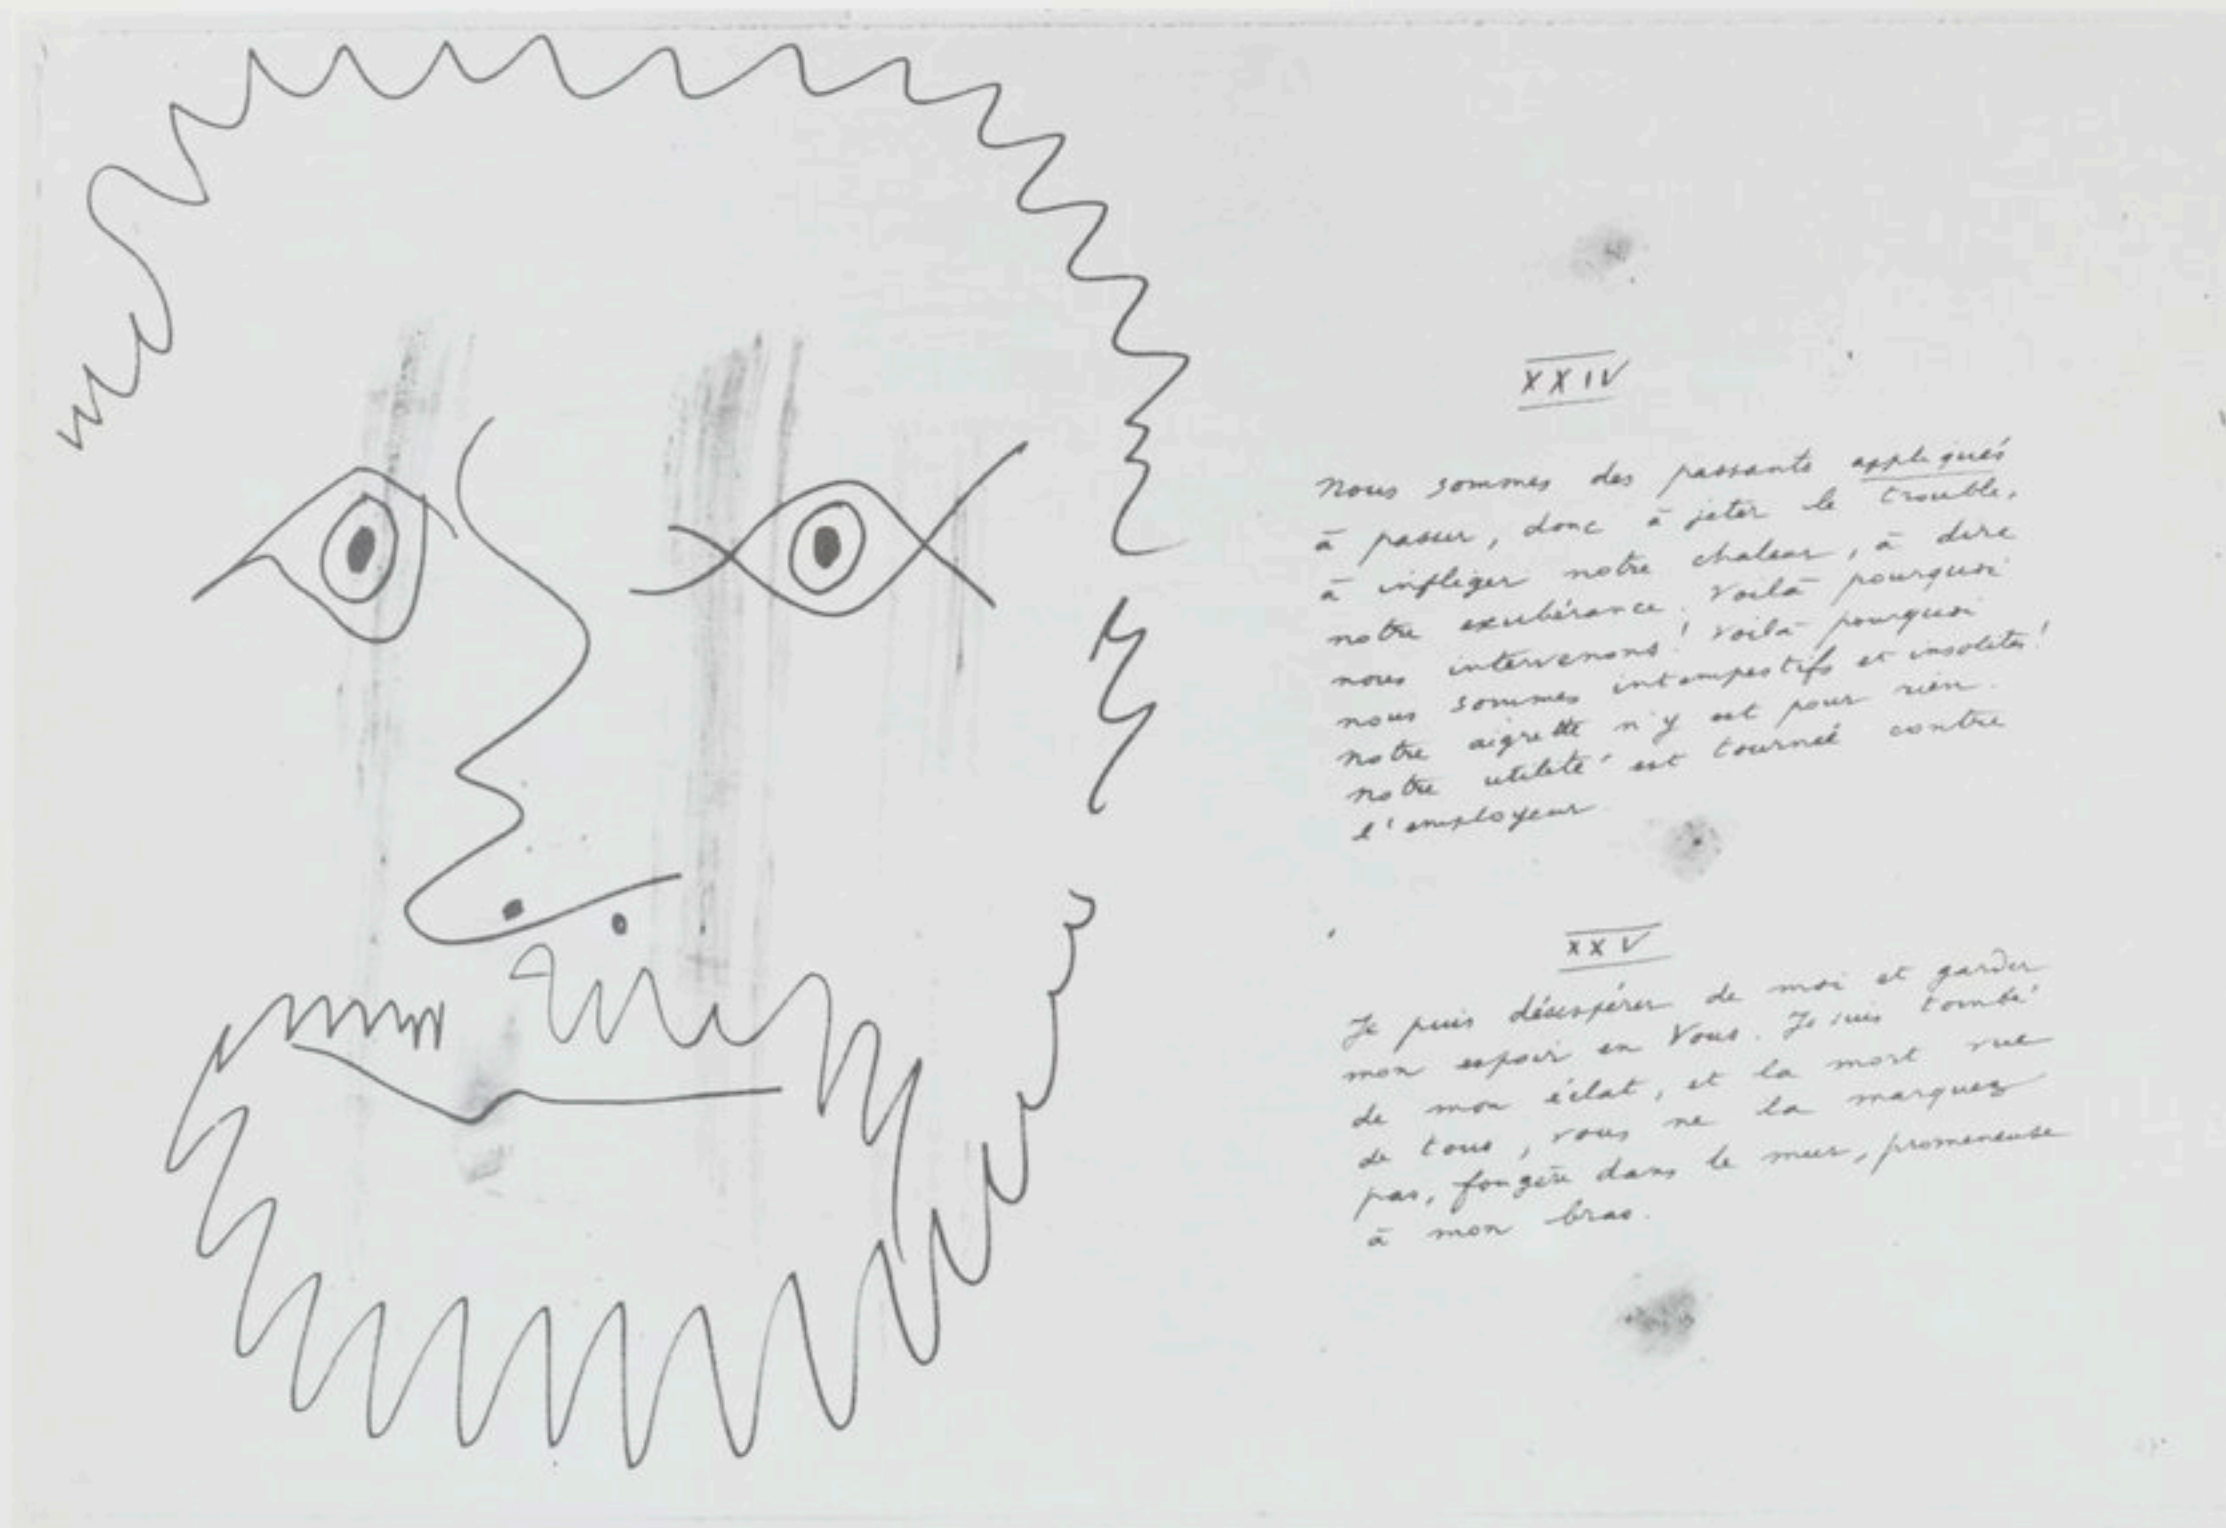 XXIV
Nous sommes des passants appliqués
à passer, donc à jeter le trouble,
à infliger notre chaleur, à dire
notre exubérance. Voilà pourquoi
nous intervenons! Voilà pourquoi
nous sommes intempestifs et insolites!
Notre aigrette n'y est pour rien.
Notre utilité est tournée contre
l'employeur.
XXV
Je puis désespérer de moi et garder
mon espoir en Vous. Je suis tombé
de mon éclat, et la mort vue
de tous, vous ne la marquez
pas, fougère dans le mur, promeneuse
à mon bras.